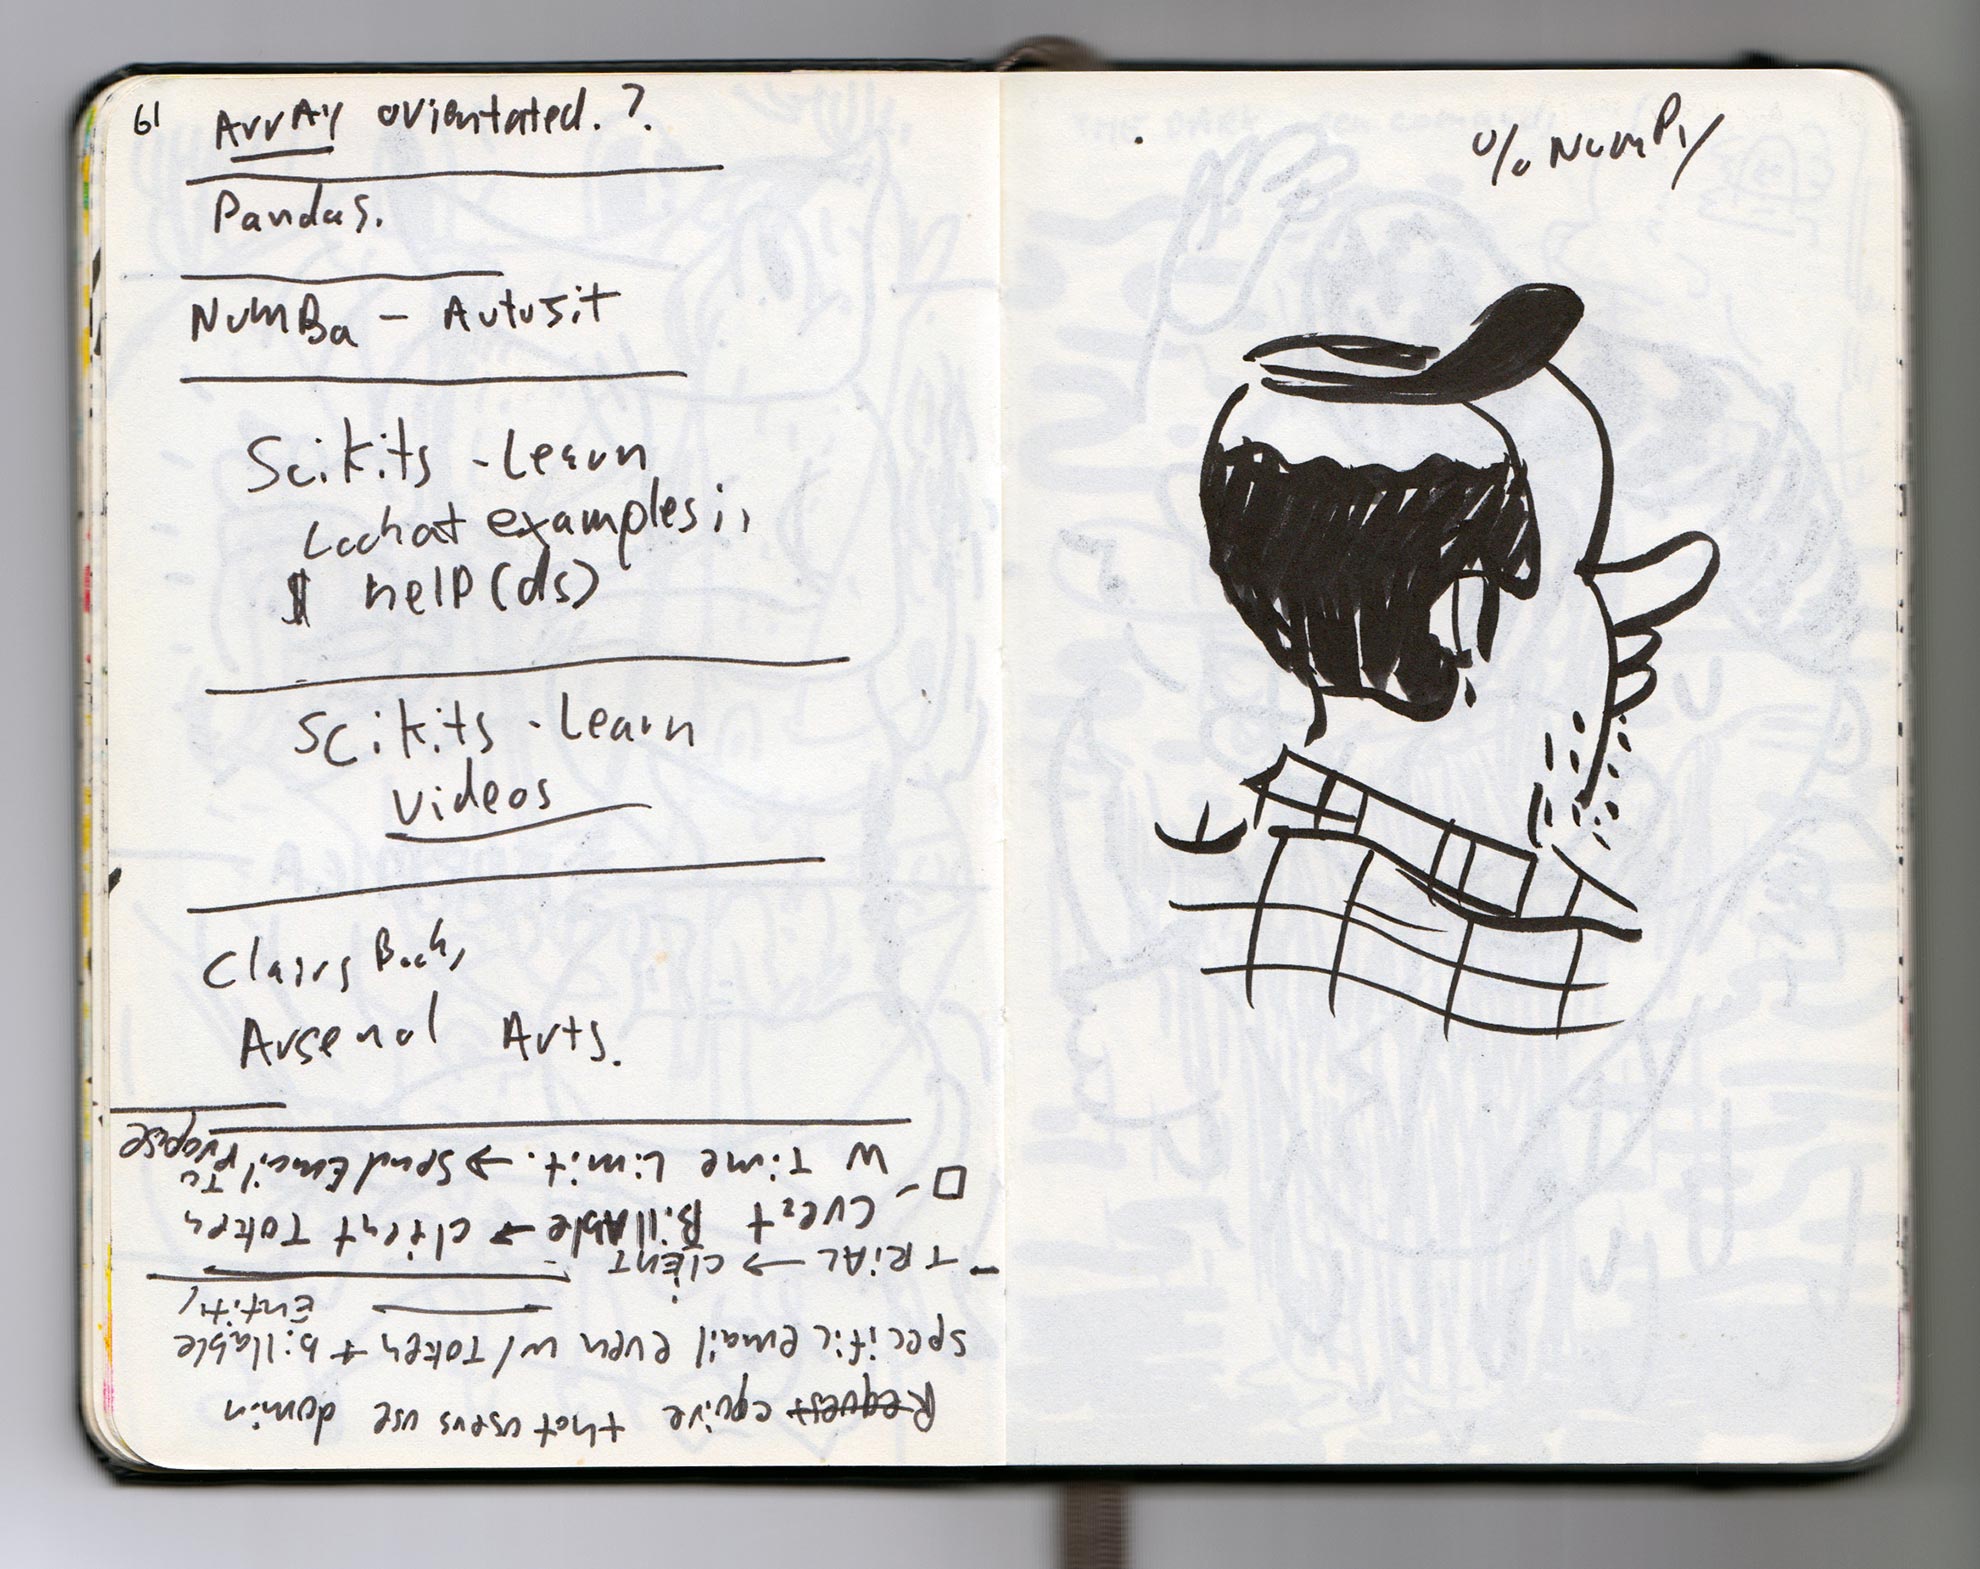 61
Array orientated. ?.
Pandas.
NumBa - Autojit
Scikits - Learn
Look at examples
$ help(ds)
Scikits - Learn
videos
Arsenal Arts.
% NumPy
Request equire that users use domin
specific email even w/ Token + billable
Entity
- TRiAL → client
Billable → client Token
W Time Limit. → Send Email To
Propose